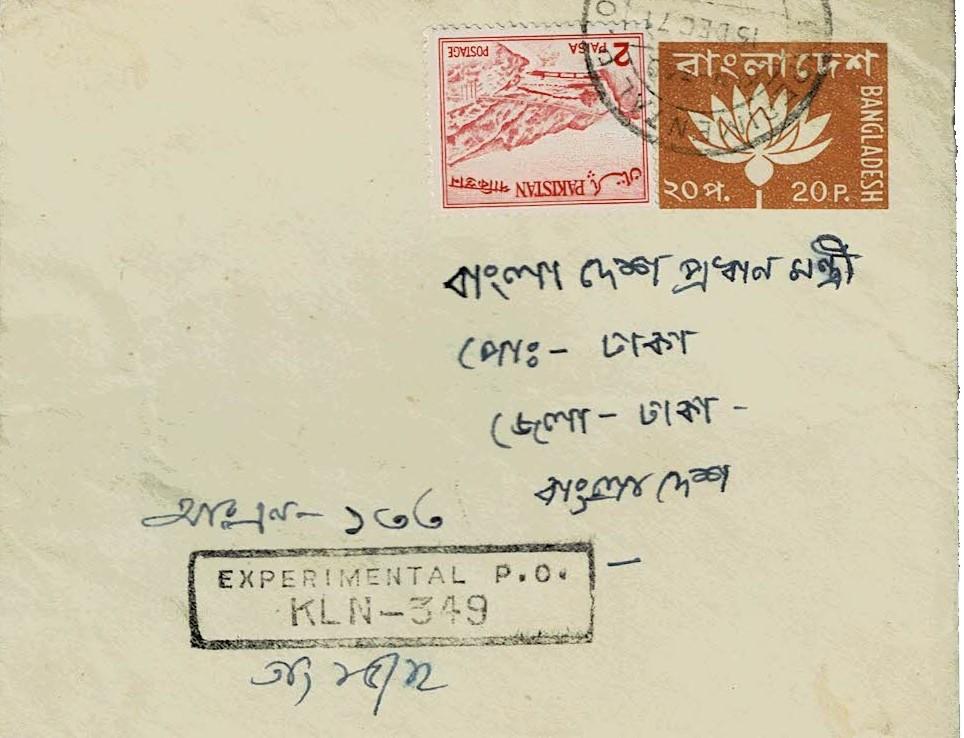 15 DEC 71
EXPERIMENTAL P.O.
2
PAISA
POSTAGE
PAKISTAN
پاکستان
পাকিস্তান
বাংলাদেশ
BANGLADESH
২০ প. 20 P.
বাংলা দেশ প্রধান মন্ত্রী
পোঃ- ঢাকা
জেলা - ঢাকা -
বাংলা দেশ
১৩৩
EXPERIMENTAL P.O.
KLN-349